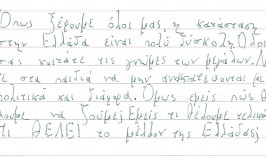 Όπως ξέρουμε όλοι μας, η κατάσταση
στην Ελλάδα είναι πολύ δύσκολη. Όλοι
σας κοιτάτε τις γνώμες των μεγάλων.
σε στα παιδιά να μην ανακατεύονται με
πολιτικά και διάφορα. Όμως εμείς πώς θ
να ζούμε; Εμείς τι θέλουμε τελικά
τι ΘΕΛΕΙ το μέλλον της Ελλάδας;